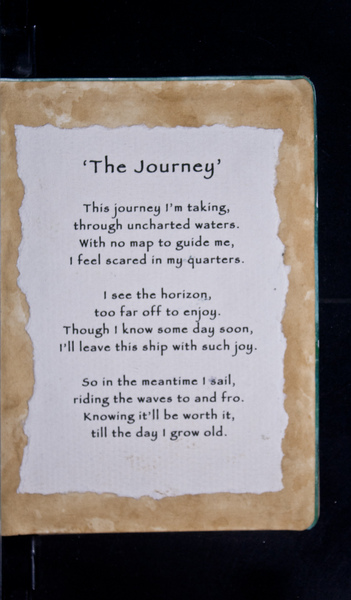 ‘The Journey’
This journey I'm taking,
through uncharted waters.
With no map to guide me,
I feel scared in my quarters.
I see the horizon,
too far off to enjoy.
Though I know some day soon,
I'll leave this ship with such joy.
So in the meantime I sail,
riding the waves to and fro.
Knowing it'll be worth it,
till the day I grow old.